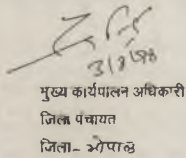 3/8/98
मुख्य कार्यपालन अधिकारी
जिला पंचायत
जिला- भोपाल